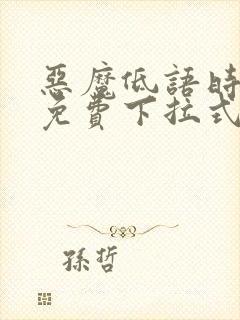 惡魔低語時
免費下拉式
孫哲